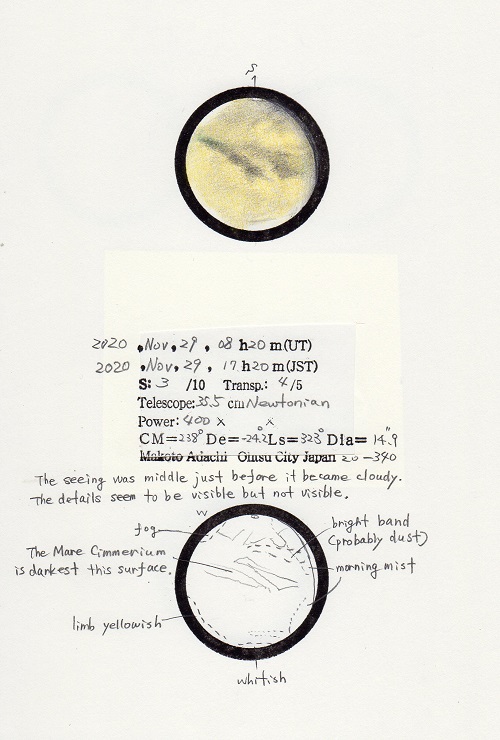 S
2020 , Nov, 29 , 08 h20 m(UT)
2020 , Nov, 29 , 17 h20 m(JST)
S: 3 /10 Transp.: 4/5
Telescope: 35.5 cm Newtonian
Power: 400 X X
CM=238° De=-24.2 Ls=323° Dia= 14".9
Makoto Adachi Ohtsu City Japan 20-340
The seeing was middle just before it became cloudy.
The details seem to be visible but not visible.
fog
bright band
(probably dust)
The Mare Cimmerium
is darkest this surface.
morning mist
limb yellowish
whitish